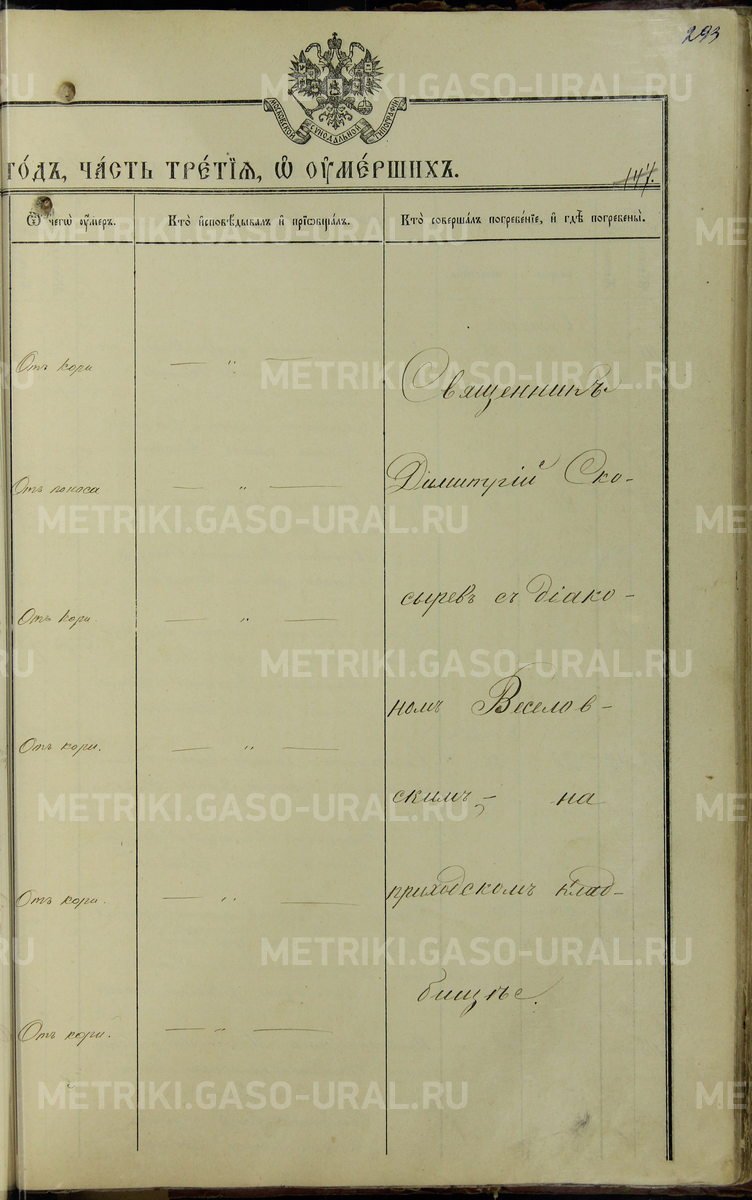 293
МОСКОВСКОЙ СѴНОДАЛЬНОЙ ТИПОГРАФІИ
го́дъ, ча́сть тре́тїѧ, ѿ ᲂу҆ме́ршихъ.
147.
Ѿ чегѡ̀ ᲂу҆́меръ.
Кто̀ и҆сповѣ́дывалъ и҆ прїѡбща́лъ.
Кто̀ соверша́лъ погребе́нїе, и҆ гдѣ̀ погребены̀.
Отъ кори — „ —
Священникъ
Отъ поноса — „ —
Димитрій Ско-
Отъ кори. — „ —
сыревъ съ діако-
номъ Веселов-
Отъ кори. — „ —
скимъ, — на
Отъ кори. — „ —
приходскомъ клад-
бищѣ.
Отъ кори. — „ —
METRIKI.GASO-URAL.RU